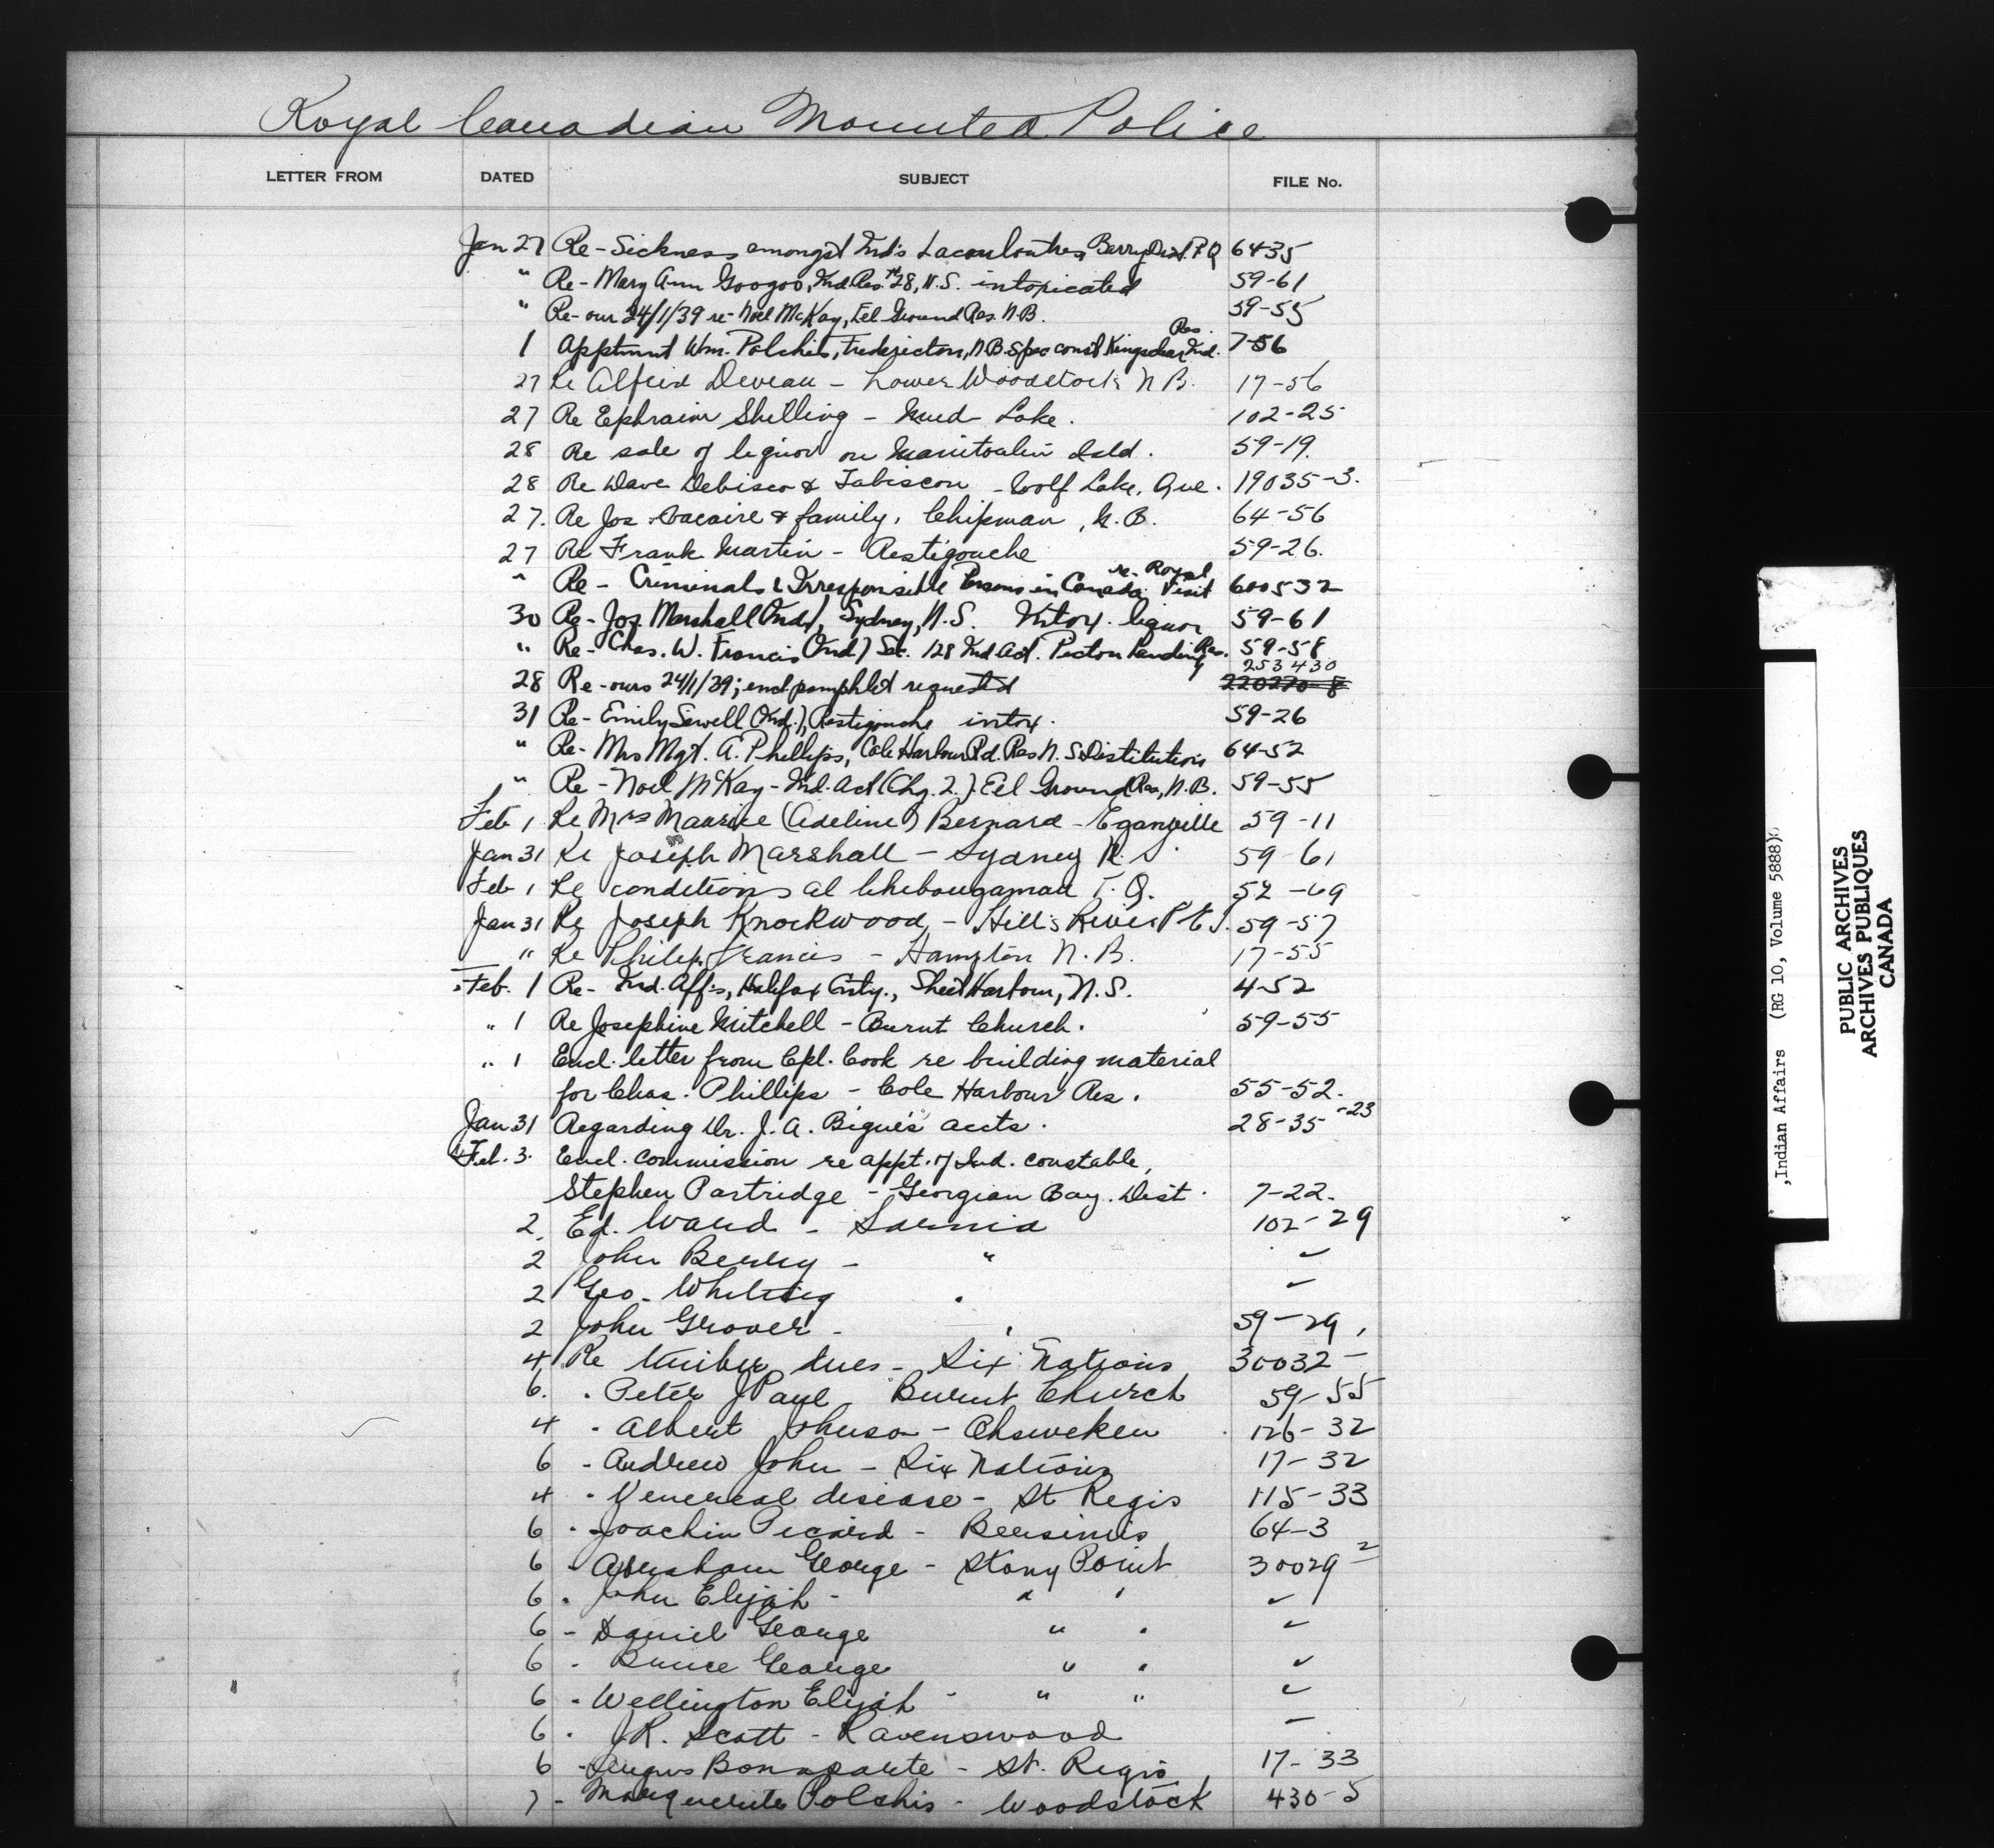 Royal Canadian Mounted Police
LETTER FROM DATED SUBJECT FILE No.
Jan 27 Re - Sickness amongst Ind's Barry Dist. P.Q 64-35
" Re - Mary Ann Googoo, Ind. Res. 28, N.S. intoxicated 59-61
" Re - our 24/1/39 re - Noel McKay, Eel Ground Res. N.B. 59-55
1 Apptmnt Wm. Polchis, Fredericton, N.B. Spec const Kingsclear Ind. Res. 7-56
27 Re Alfred Deveau - Lower Woodstock N B. 17-56
27 Re Ephraim Shilling - Mud Lake. 102-25
28 Re sale of liquor on Manitoulin Isld. 59-19.
28 Re Dave Debisco & Tabiscon - Wolf Lake, Que. 19035-3.
27. Re Jos & family, Chipman, N.B. 64-56
27 Re Frank Martin - Restigouche 59-26.
" Re - Criminals & Irresponsible Persons in Canada re - Royal Visit 600532
30 Re - Jos. Marshall (Ind), Sydney, N.S. Intox. liquor 59-61
" Re - Chas. W. Francis (Ind) Sec. 128 Ind Act. Pictou Landing Res. 59-58
28 Re - ours 24/1/39; encl pamphlet requested 253430 220270-8
31 Re - Emily Sewell (Ind.), Restigouche intox. 59-26
" Re - Mrs Mgt. A. Phillips, Cole Harbour Rd. Res N.S Distitution 64-52
" Re - Noel McKay - Ind. Act (Chg. 2.) Eel Ground Res, N.B. 59-55
Feb 1 Re Mrs Maurice (Adeline) Bernard - Eganville 59-11
Jan 31 Re Joseph Marshall - Sydney N.S. 59-61
Feb 1 Re conditions at Chibougamau P.Q. 52-
Jan 31 Re Joseph Knockwood - Hills River P E I. 59-57
" Re Philip Francis - Hampton N.B. 17-55
Feb. 1 Re - Ind. Aff's, Halifax Cnty., Sheet Harbour, N.S. 4-52
" 1 Re Josephine Mitchell - Burnt Church. 59-55
" 1 Encl. letter from Cpl. Cook re building material
for Chas. Phillips - Cole Harbour Res. 55-52.
Jan 31 Regarding Dr. J.A. Bigué's accts. 28-35-23
Feb. 3. Encl. commission re appt. of Ind. constable,
Stephen Partridge - Georgian Bay. Dist. 7-22.
2. Ed. Ward - Sarnia 102-29
2 John - " ✓
2 Geo. " ✓
2 John Grover - " 59-29
4 Re timber dues - Six Nations 30032-
6. " Peter J Paul Burnt Church 59-55
4 " Albert Johnson - Ohsweken 126-32
6 " Andrew John - Six Nations 17-32
4 " Venereal disease - St Regis 115-33
6 " Joachin Picard - Bersimis 64-3
6 " Abraham George - Stony Point 30029-2
6 " John Elijah - " " ✓
6 " Daniel George " " ✓
6 " Bruce George " " ✓
6 " Wellington Elijah - " " ✓
6 " J.R. Scott - Ravenswood -
6 " Angus Bonaparte - St. Regis 17-33
7 - Marguerite Polchis - Woodstock 430-5
,Indian Affairs (RG 10, Volume 5888)
PUBLIC ARCHIVES
ARCHIVES PUBLIQUES
CANADA